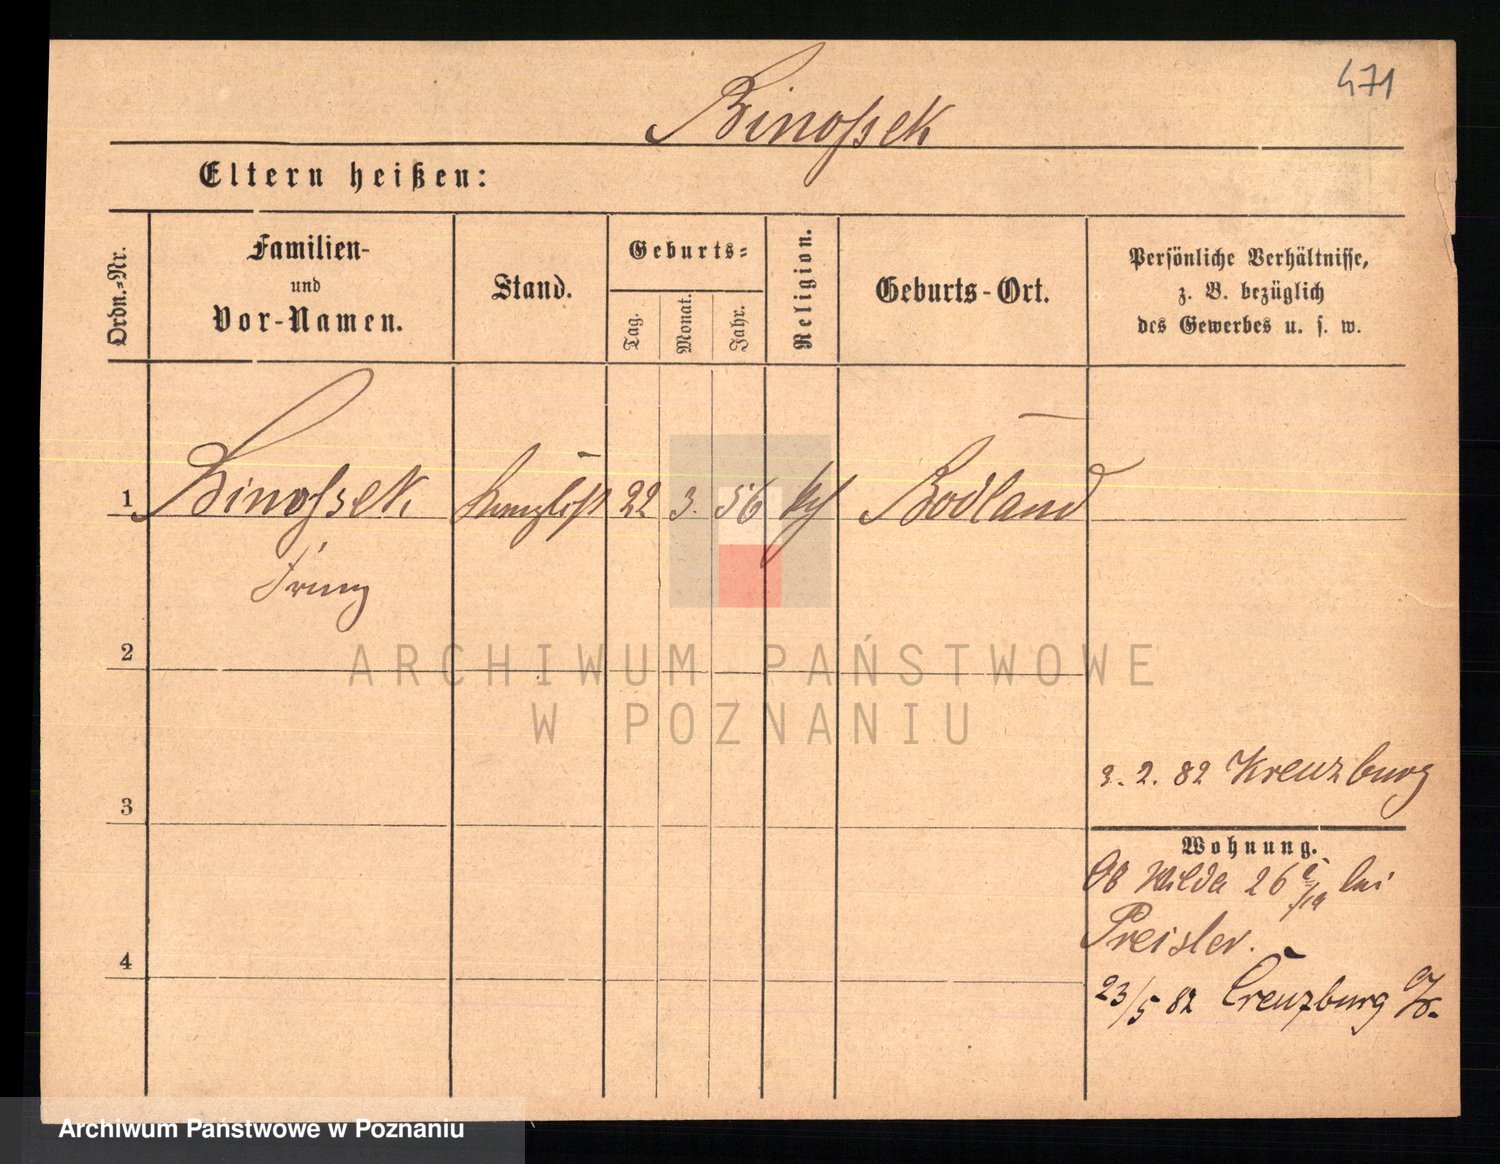 471
Binossek
Eltern heißen:
Ordn.-Nr.
Familien-
und
Vor-Namen.
Stand.
Geburts-
Tag.
Monat.
Jahr.
Religion.
Geburts-Ort.
Persönliche Verhältnisse,
z. B. bezüglich
des Gewerbes u. s. w.
1 Binossek Kanzlist 22 3. 56 Bodland
Franz
2
ARCHIWUM PAŃSTWOWE
W POZNANIU
3. 2. 82 Kreuzburg
3
Wohnung.
Ob Wilda 26 bei
Preisler.
4
23/5 82 Creuzburg
Archiwum Państwowe w Poznaniu